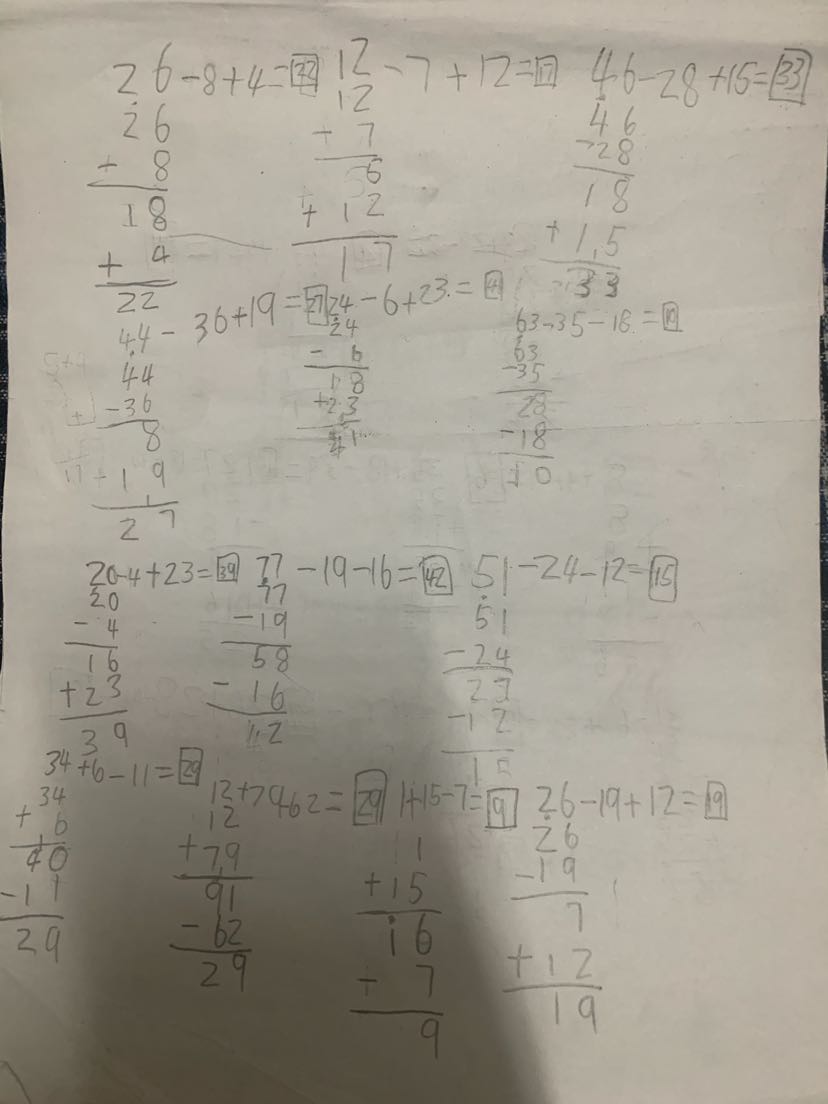 26-8+4=22 12-7+12=17 46-28+15=33
26 12 46
+ 8 + 7 -28
18 6 18
+ 4 + 12 + 15
22 17 33
44-36+19=27 24-6+23=41 63-35-18=10
44 24 63
-36 - 6 -35
8 18 28
+19 +23 -18
27 41 10
20-4+23=39 77-19-16=42 51-24-12=15
20 77 51
- 4 -19 -24
16 58 27
+23 -16 -12
39 42 15
34+6-11=29 12+7962=29 1+15-7=9 26-19+12=19
34 12 1 26
+ 6 +79 +15 -19
40 91 16 7
-11 -62 + 7 +12
29 29 9 19